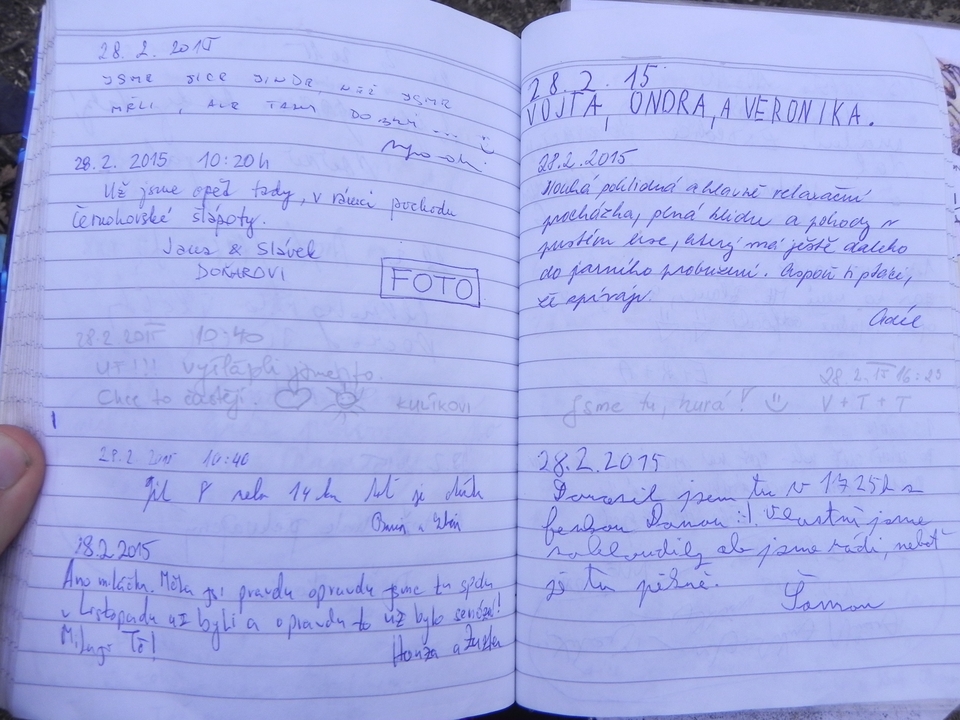 28. 2. 2015
JSME SICE JINDE, NEŽ JSME
MĚLI, ALE TAKY DOBRÝ ... 
28. 2. 2015 10:20h
Už jsme opět tady, v rámci pochodu
Černohorské šlápoty.
Jana & Slávek
FOTO
28.2.2015 10:40
UŤ!!! vyšlápli jsme to.
Chce to častěji. KULÍKOVI
28.2.2015 10:40
Jít 8 nebo 14 km
28.2.2015
Ano mládka. Měla jsi pravdu opravdu jsme tu spolu
v Listopadu už byli a opravdu to už bylo
Tě!
Honza a Zuzka
28.2.15
VOJTA, ONDRA, A VERONIKA.
28.2.2015
pohlidná a hlavně relaxační
procházka, plná klidu a pohody v
pustém lese, který má ještě daleko
do jarního probuzení. Aspoň ti ptáci,
že zpívají.
28. 2. 15 16:23
Jsme tu, hurá! V + T + T
28.2.2015
Dorazil jsem tu v 1725h s
:). Vlastně jsme
zabloudily ale jsme rádi, neboť
je tu pěkně.